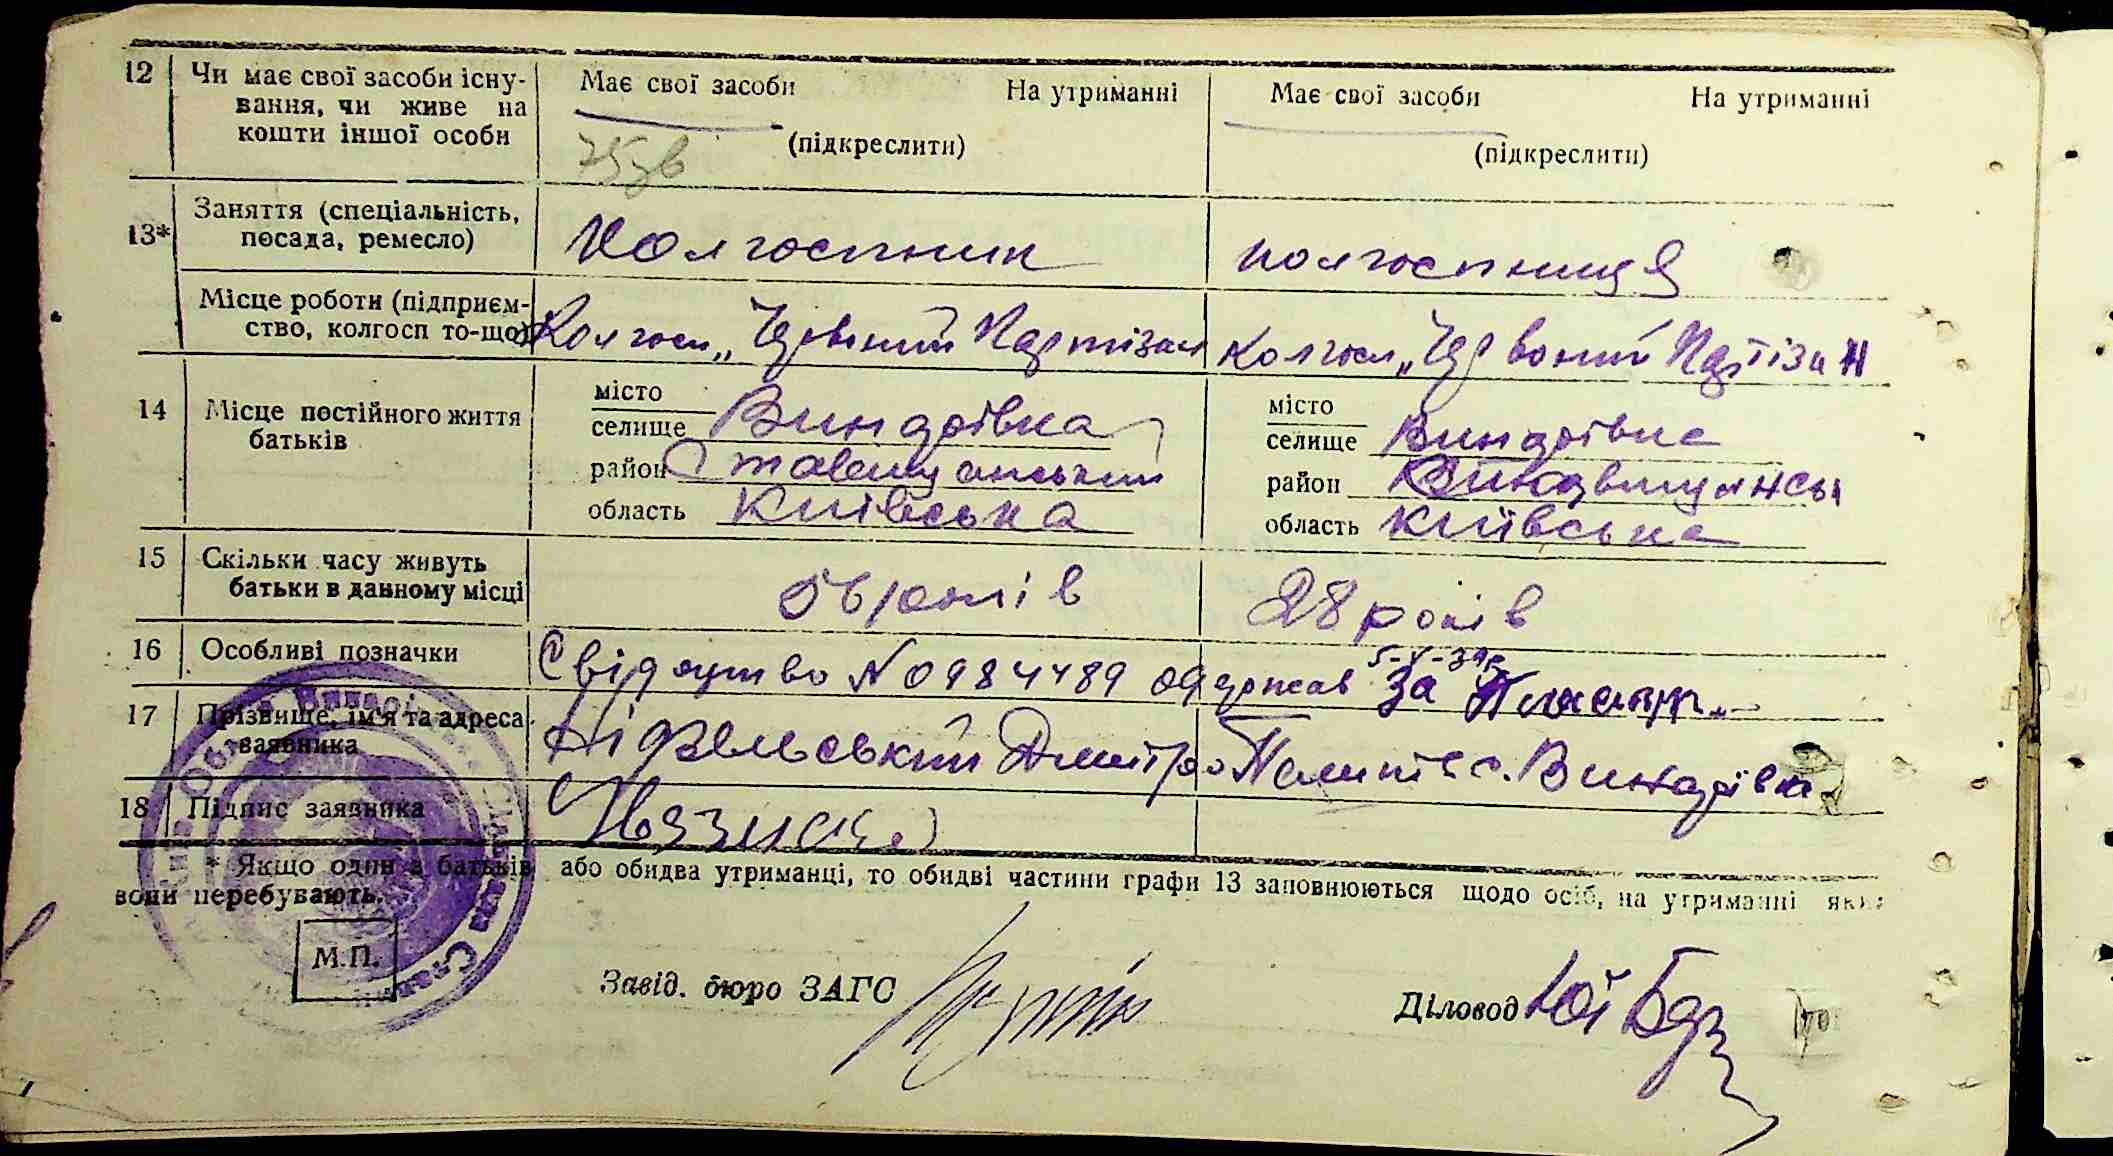 12 Чи має свої засоби існу- Має свої засоби На утриманні Має свої засоби На утриманні
вання, чи живе на
кошти іншої особи (підкреслити) (підкреслити)
Заняття (спеціальність,
13* посада, ремесло) Колгоспник колгоспниця
Місце роботи (підприєм-
ство, колгосп то-що) Колгосп „Червоний Партізан Колгосп „Червоний Партізан
14 Місце постійного життя місто місто
батьків селище Винарівка селище Винарівка
район Ставищанський район
область Київська область Київська
15 Скільки часу живуть
батьки в данному місці 56 років 28 років
16 Особливі позначки Свідоцтво № 0984489 одержав 5-V-39р За
17 Прізвище, ім'я та адреса Дмитро с. Винарівка
заявника
18 Підпис заявника
* Якщо один з батьків або обидва утриманці, то обидві частини графи 13 заповнюються щодо осіб, на утриманні яких
вони перебувають.
М.П.
Завід. бюро ЗАГС Діловод